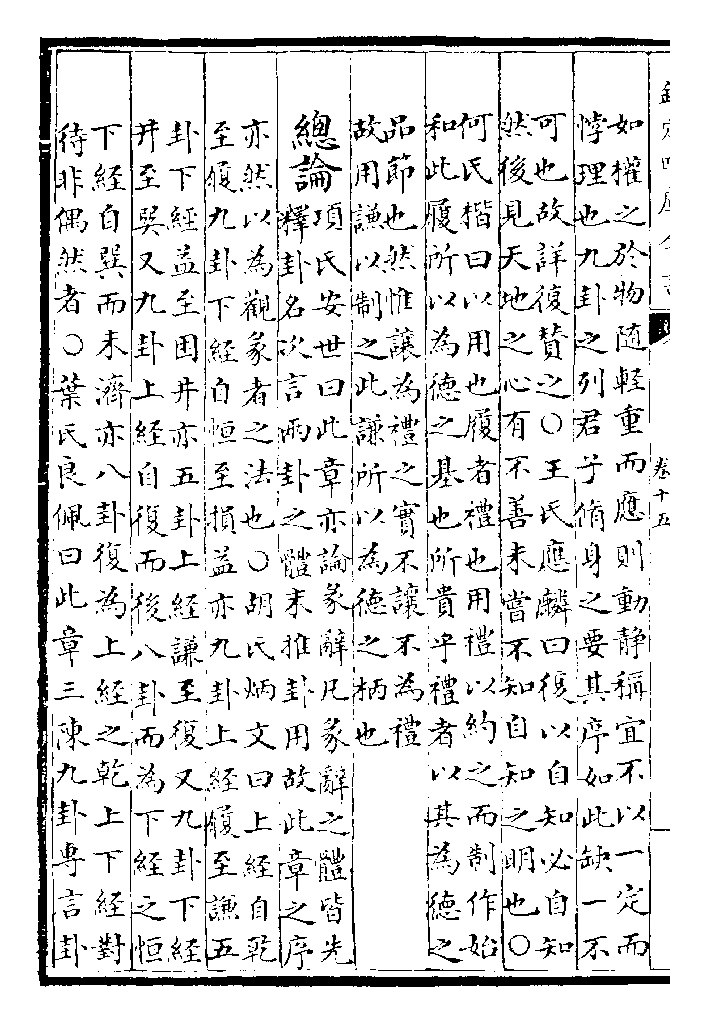 欽定四庫全書
卷十五
如權之於物隨輕重而應則動靜稱宜不以一定而
悖理也九卦之列君子脩身之要其序如此缺一不
可也故詳復贊之〇王氏應麟曰復以自知必自知
然後見天地之心有不善未嘗不知自知之明也〇
何氏楷曰以用也履者禮也用禮以約之而制作始
和此履所以為德之基也所貴乎禮者以其為德之
品節也然惟讓為禮之實不讓不為禮
故用謙以制之此謙所以為德之柄也
總論
項氏安世曰此章亦論彖辭凡彖辭之體皆先
釋卦名次言兩卦之體末推卦用故此章之序
亦然以為觀彖者之法也〇胡氏炳文曰上經自乾
至履九卦下經自恒至損益亦九卦上經履至謙五
卦下經益至困井亦五卦上經謙至復又九卦下經
井至巽又九卦上經自復而後八卦而為下經之恒
下經自巽而未濟亦八卦復為上經之乾上下經對
待非偶然者〇葉氏良佩曰此章三陳九卦專言卦